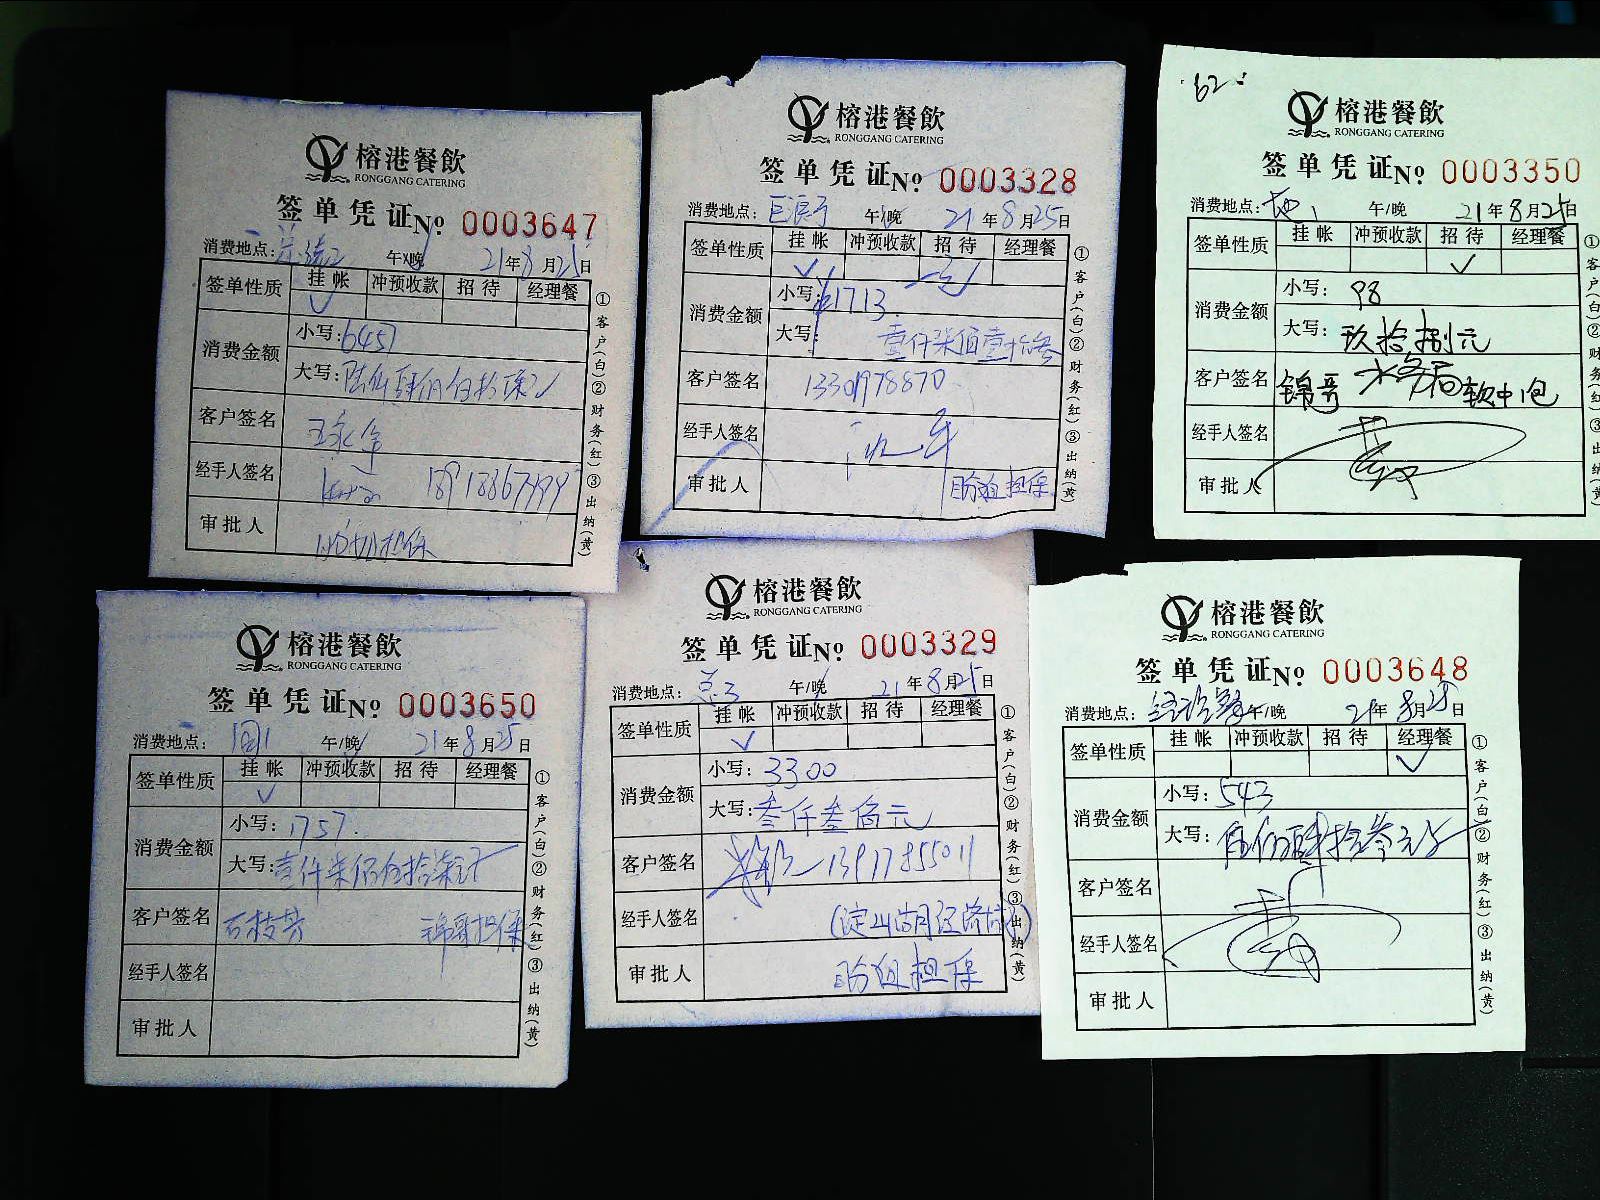 榕港餐飲
RONGGANG CATERING
签单凭证№ 0003647
消费地点: 午/晚 21年8月25日
签单性质 挂帐 冲预收款 招待 经理餐
✓
消费金额 小写: 6457
大写: 陆仟肆佰伍拾柒元
客户签名
经手人签名
审批人 担保
①客户(白)②财务(红)③出纳(黄)
榕港餐飲
RONGGANG CATERING
签单凭证№ 0003328
消费地点: 午/晚 21年8月25日
签单性质 挂帐 冲预收款 招待 经理餐
✓
消费金额 小写: 1713
大写: 壹仟柒佰壹拾叁
客户签名
经手人签名
审批人 担保
①客户(白)②财务(红)③出纳(黄)
62
榕港餐飲
RONGGANG CATERING
签单凭证№ 0003350
消费地点: 午/晚 21年8月25日
签单性质 挂帐 冲预收款 招待 经理餐
✓
消费金额 小写: 98
大写: 玖拾捌元
客户签名 锦哥 软中1包
经手人签名
审批人
①客户(白)②财务(红)③出纳(黄)
榕港餐飲
RONGGANG CATERING
签单凭证№ 0003650
消费地点: 午/晚 21年8月25日
签单性质 挂帐 冲预收款 招待 经理餐
✓
消费金额 小写: 1757
大写: 壹仟柒佰伍拾柒元
客户签名 锦哥担保
经手人签名
审批人
①客户(白)②财务(红)③出纳(黄)
榕港餐飲
RONGGANG CATERING
签单凭证№ 0003329
消费地点: 午/晚 21年8月25日
签单性质 挂帐 冲预收款 招待 经理餐
✓
消费金额 小写: 3300
大写: 叁仟叁佰元
客户签名 13917855011
经手人签名
审批人 担保
①客户(白)②财务(红)③出纳(黄)
榕港餐飲
RONGGANG CATERING
签单凭证№ 0003648
消费地点: 经理餐 午/晚 21年8月25日
签单性质 挂帐 冲预收款 招待 经理餐
✓
消费金额 小写: 543
大写: 伍佰肆拾叁元
客户签名
经手人签名
审批人
①客户(白)②财务(红)③出纳(黄)